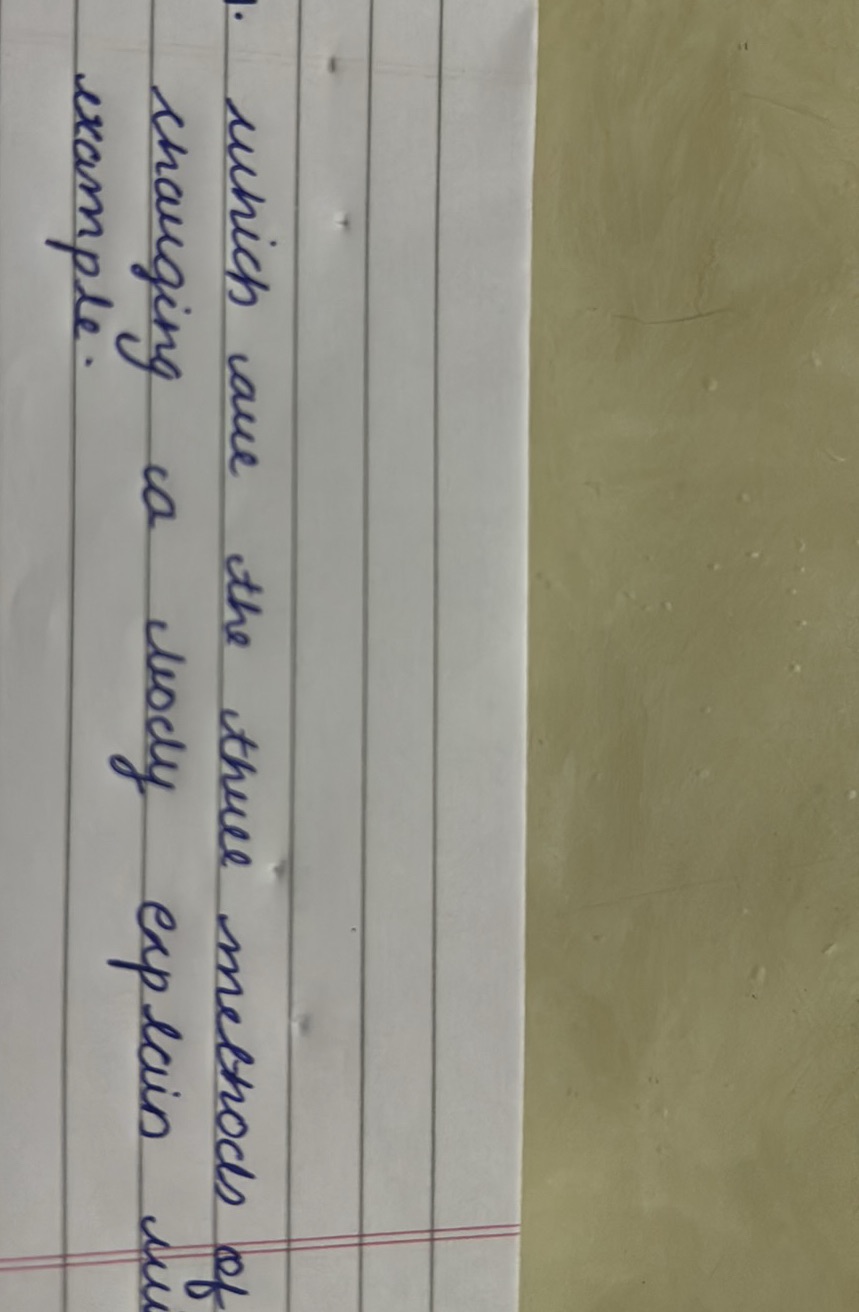 which are the three methods of
charging a body explain
example.